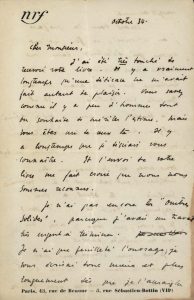 nrf
octobre 34.
Cher Monsieur,
J'ai été très touché de
recevoir votre livre. Il y a vraiment
longtemps qu'une dédicace ne m'avait
fait autant de plaisir. Vous savez
comme il y a peu d'hommes dont
on souhaite de mériter l'estime, mais
vous êtes un de ceux-là. Il y a
longtemps que je désirais vous
connaître. Et l'envoi de votre
livre me fait croire que nous nous
sommes reconnus.
Je n'ai pas encore lu
parce que j'avais un travail
très urgent à terminer.
Je n'ai que feuilleté l'ouvrage, je
vous écrirai donc mieux et plus
longuement dès que je l'aurai
Paris, 43, rue de Beaune — 5, rue Sébastien-Bottin (VIIe)